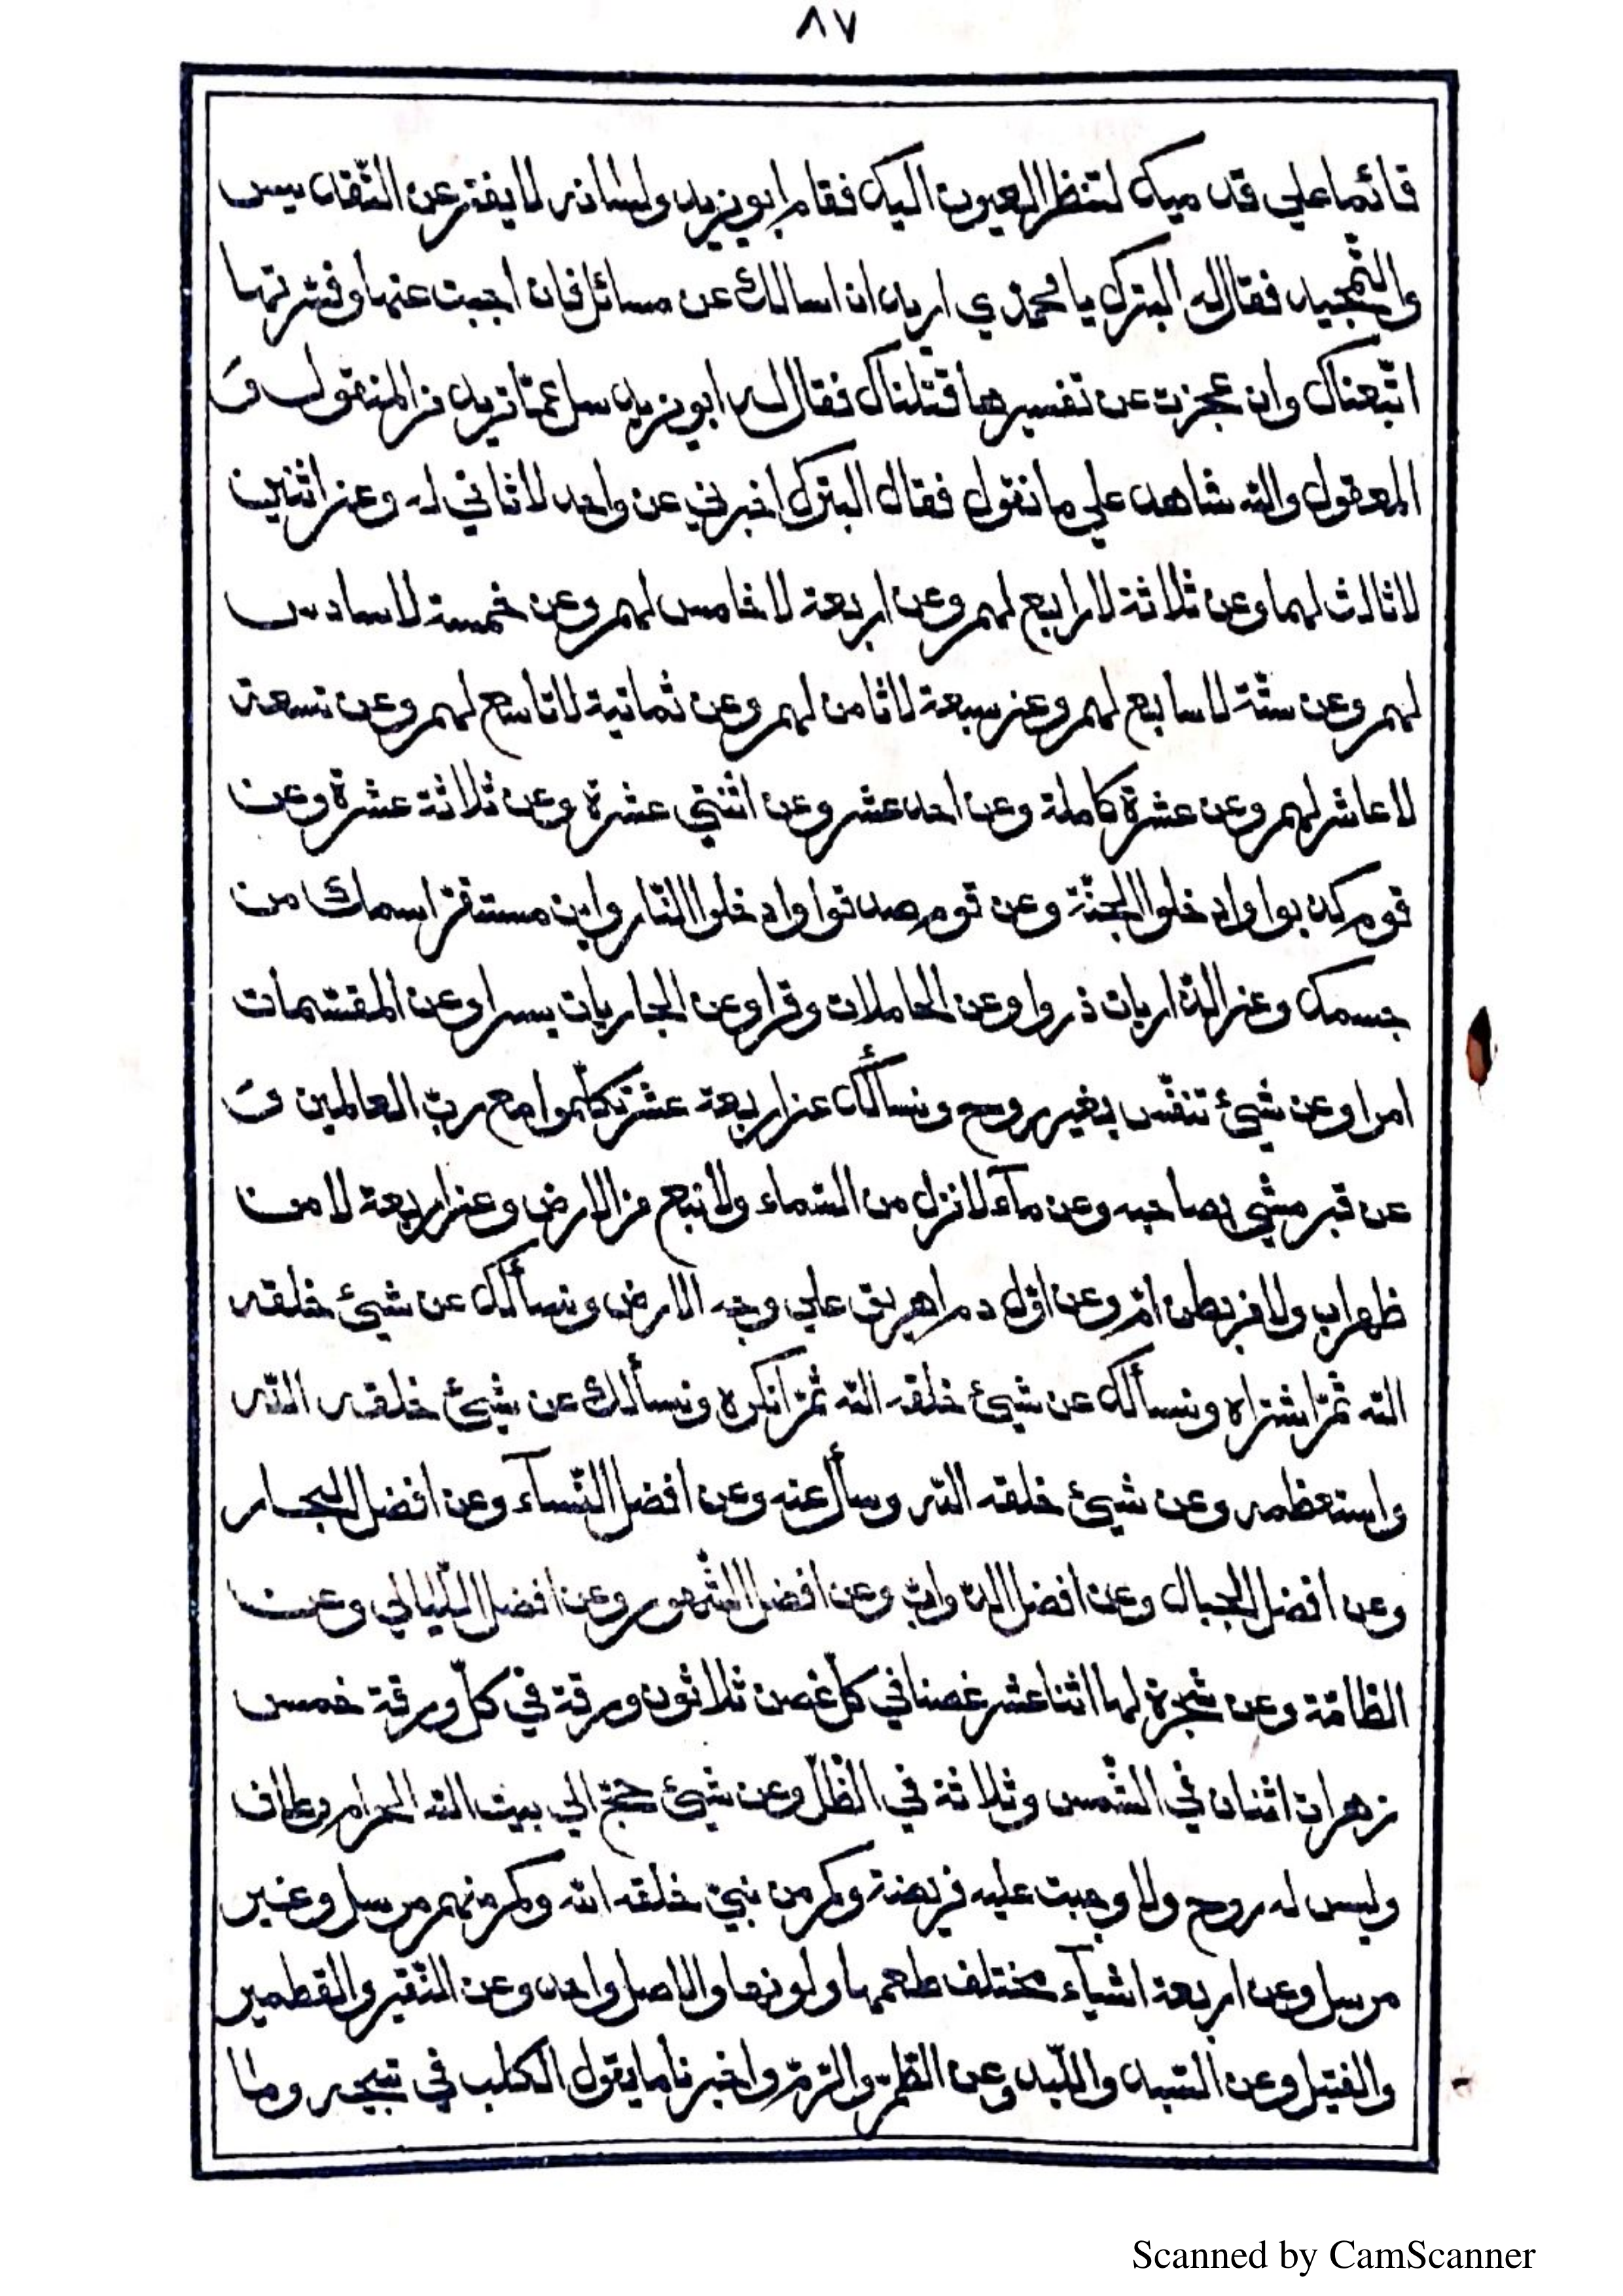 ٨٧
قائما علي قدميك لتنظر العيون اليك فقام ابويزيد ولسانه لا يفتر عن التّقديس
والتّمجيد فقال له البترك يا محمّدي اريد ان اسالك عن مسائل فان اجبت عنها وفسّرتها
اتّبعناك وان عجزت عن تفسيرها قتلناك فقال له ابويزيد سل عمّا تريد من المنقول و
المعقول والله شاهد علي ما نقول فقال البترك اخبرني عن واحد لا ثاني له وعن اثنين
لا ثالث لهما وعن ثلاثة لا رابع لهم وعن اربعة لا خامس لهم وعن خمسة لا سادس
لهم وعن ستّة لا سابع لهم وعن سبعة لا ثامن لهم وعن ثمانية لا تاسع لهم وعن تسعة
لا عاشر لهم وعن عشرة كاملة وعن احد عشر وعن اثنتي عشرة وعن ثلاثة عشرة وعن
قوم كذبوا وادخلوا الجنّة وعن قوم صدقوا وادخلوا النّار واين مستقرّ اسمك من
جسمك وعن الذّاريات ذروا وعن الحاملات وقرا وعن الجاريات يسرا وعن المقسّمات
امرا وعن شيئ تنفّس بغير روح ونسألك عن اربعة عشر تكلّموا مع ربّ العالمين و
عن قبر مشي بصاحبه وعن مآء لا نزل من السّماء ولا نبع من الارض وعن اربعة لا من
ظهر اب ولا من بطن امّ وعن اوّل دم اهريق علي وجه الارض ونسألك عن شيئ خلقه
الله ثمّ اشتراه ونسألك عن شيئ خلقه الله ثمّ انكره ونسألك عن شيئ خلقه الله
واستعظمه وعن شيئ خلقه الله وسأل عنه وعن افضل النّسآء وعن افضل البحار
وعن افضل الجبال وعن افضل الدّوابّ وعن افضل الشّهور وعن افضل اللّيالي وعن
الطّامّة وعن شجرة لها اثنا عشر غصنا في كلّ غصن ثلاثون ورقة في كلّ ورقة خمس
زهرات اثنان في الشّمس وثلاثة في الظّلّ وعن شيئ حجّ الي بيت الله الحرام وطاف
وليس له روح ولا وجبت عليه فريضة وكم من نبيّ خلقه الله وكم منهم مرسل وغير
مرسل وعن اربعة اشيآء مختلف طعمها ولونها والاصل واحد وعن النّقير والقطمير
والفتيل وعن السّبد واللّبد وعن الطّمّ والرّمّ واخبرنا ما يقول الكلب في نبيحه وما
Scanned by CamScanner